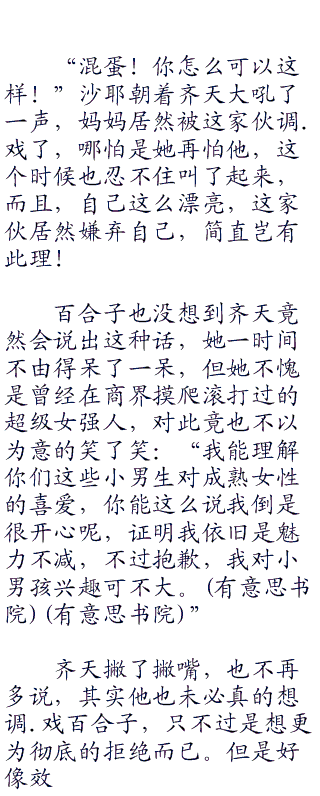 “混蛋！你怎么可以这
样！”沙耶朝着齐天大吼了
一声，妈妈居然被这家伙调.
戏了，哪怕是她再怕他，这
个时候也忍不住叫了起来，
而且，自己这么漂亮，这家
伙居然嫌弃自己，简直岂有
此理！
百合子也没想到齐天竟
然会说出这种话，她一时间
不由得呆了一呆，但她不愧
是曾经在商界摸爬滚打过的
超级女强人，对此竟也不以
为意的笑了笑：“我能理解
你们这些小男生对成熟女性
的喜爱，你能这么说我倒是
很开心呢，证明我依旧是魅
力不减，不过抱歉，我对小
男孩兴趣可不大。(有意思书
院)(有意思书院)”
齐天撇了撇嘴，也不再
多说，其实他也未必真的想
调.戏百合子，只不过是想更
为彻底的拒绝而已。但是好
像效